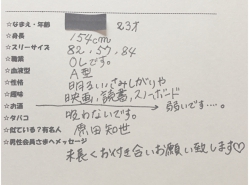 ☆なまえ・年齢 23才
☆身長 154cm
☆スリーサイズ 82,57,84
☆職業 OLです。
☆血液型 A型
☆性格 明るい、さみしがりや
☆趣味 映画,読書,スノーボード
☆お酒 弱いです…。
☆タバコ 吸わないです。
☆似ている?有名人 原田知世
☆男性会員さまへメッセージ
末長くお付き合いお願い致します♡